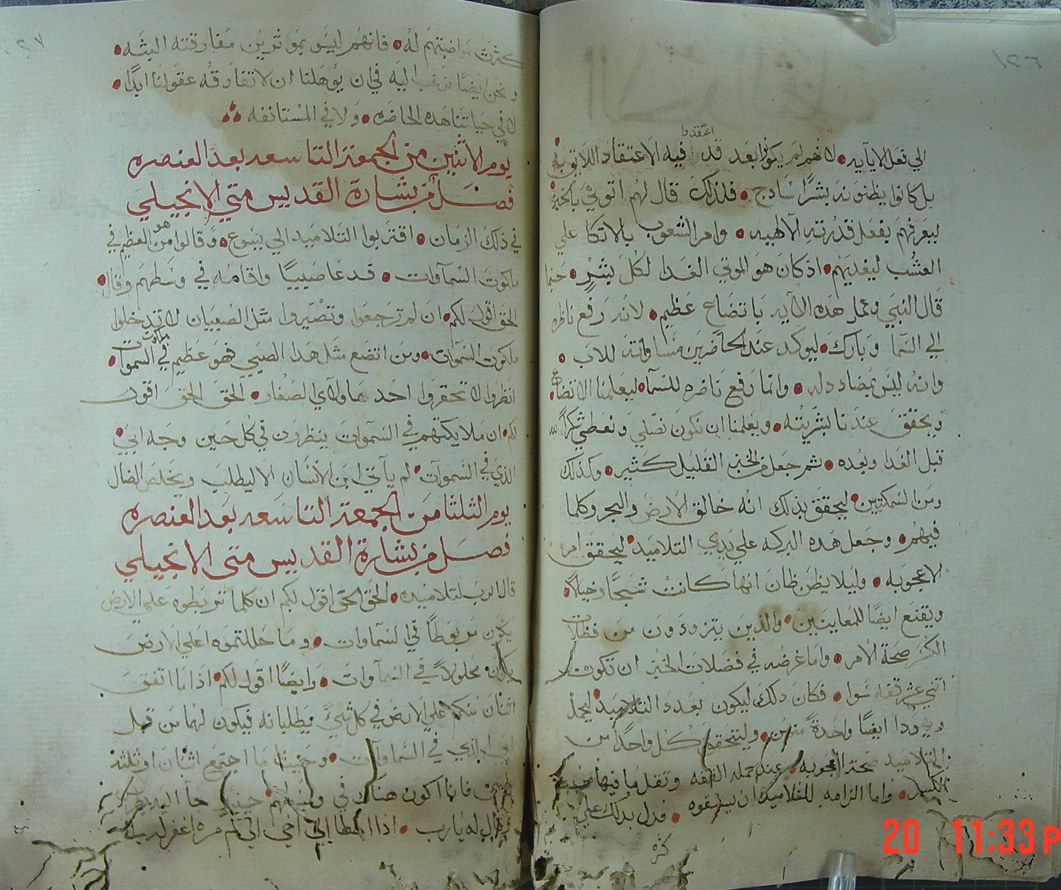 الي نعل الايآيه لانهم لم يكونوا بعد فيه الاعتقاد اللايق به
اعتقدوا
بل كانوا يظنونه بشرًا سادج فلدلك قال لهم اتوني بالخبز
ليعرفهم بفعل قدرته الالهيه وامر الشعوب بالاتكا علي
العشب ليغديهم ادكان هو الموتي الغدا لكل بشر
قال النبي وعمل هده الآيه باتضاح عظيم لانه رفع ناظره
الي السما وبارك ليوكد عند الحاضرين مساواته للاب
وانه ليس بمضاد دله وانما رفع ناضره للسما ليعلمنا الاتضاع
ويحقق عندنا بشريته ويعلمنا ان نكون نصلي ونعطي شكرًا لله
قبل الغدا وبعده ثم جعل من الخبز القليل كثير وكدلك
ومن السمكتين ليحقق بدلك انه خالق الارض والبحر وكلما
فيهم وجعل هده البركه علي يدي التلاميد ليحقق امر
الاعجوبه وليلا يظن ظان انها كانت شبحًا وخيالًا
ويقنع ايضًا للمعاينين والدين يتزودون من فضلات
الكسر صحة الامر واما غرضه في فضلات الخبز ان تكون
اثني عشر قفه سوا فكان دلك ليكون بعدد التلاميد ليحمل
ويهودا ايضًا واحدة منهن وليتحقق كل واحد من
التلاميد صحة العجوبه عند حمله القفه ونقل ما فيها من
الكسر واما الزامه للتلاميد ان فدل بدلك علي
كثرة
كثرت مواضبتهم له فانهم ليس بموثرين مفارقته البته
ونحن ايضًا نرغب اليه في ان يوهلنا ان لا تفارقه عقولنا ابدًا
لا في حياتنا هده الحاضره ولا في المستانفه
يوم الاثنين من الجمعة التاسعه بعد العنصره
فصل من بشارة القديس متي الانجيلي
في دلك الزمان اقتربوا التلاميد الي يسوع وقالوا من هو العظيم في
ملكوت السماوات فدعا صبيًا واقامه في وسطهم وقال
الحق اقول لكم ان لم ترجعوا وتصيروا مثل الصبيان لا تدخلوا
ملكوت السموات ومن اتضع مثل هدا الصبي فهو عظيم في ملكوت السموات
انظروا لا تحقروا احد هاولاي الصغار الحق الحق اقول
لكم ان ملايكتهم في السموات ينظرون في كل حين وجه ابي
الدي في السموات لم يآتي ابن الانسان الا ليطلب ويخلص الضال
يوم الثلثا من الجمعة التاسعه بعد العنصره
فصل من بشارة القديس متي الانجيلي
قال الرب لتلاميده الحق الحق اقول لكم ان كلما تربطوه علي الارض
يكون مربوطًا في السماوات وما حللتموه اعلي الارض
يكون محلولًا في السماوات وايضًا اقول لكم ادا ما اتفق
اثنان منكم علي الارض في كل شي يطلبانه فيكون لهما من قبل
ابي الدي في السماوات وحيثما اجتمع اثنان او ثلثة
باسمي فانا اكون هناك في وسطهم حينيد جآ اليه بطرس
وقال له يا رب ادا اخطا الي اخي الي كم مرة اغفر له
20 11:33 P